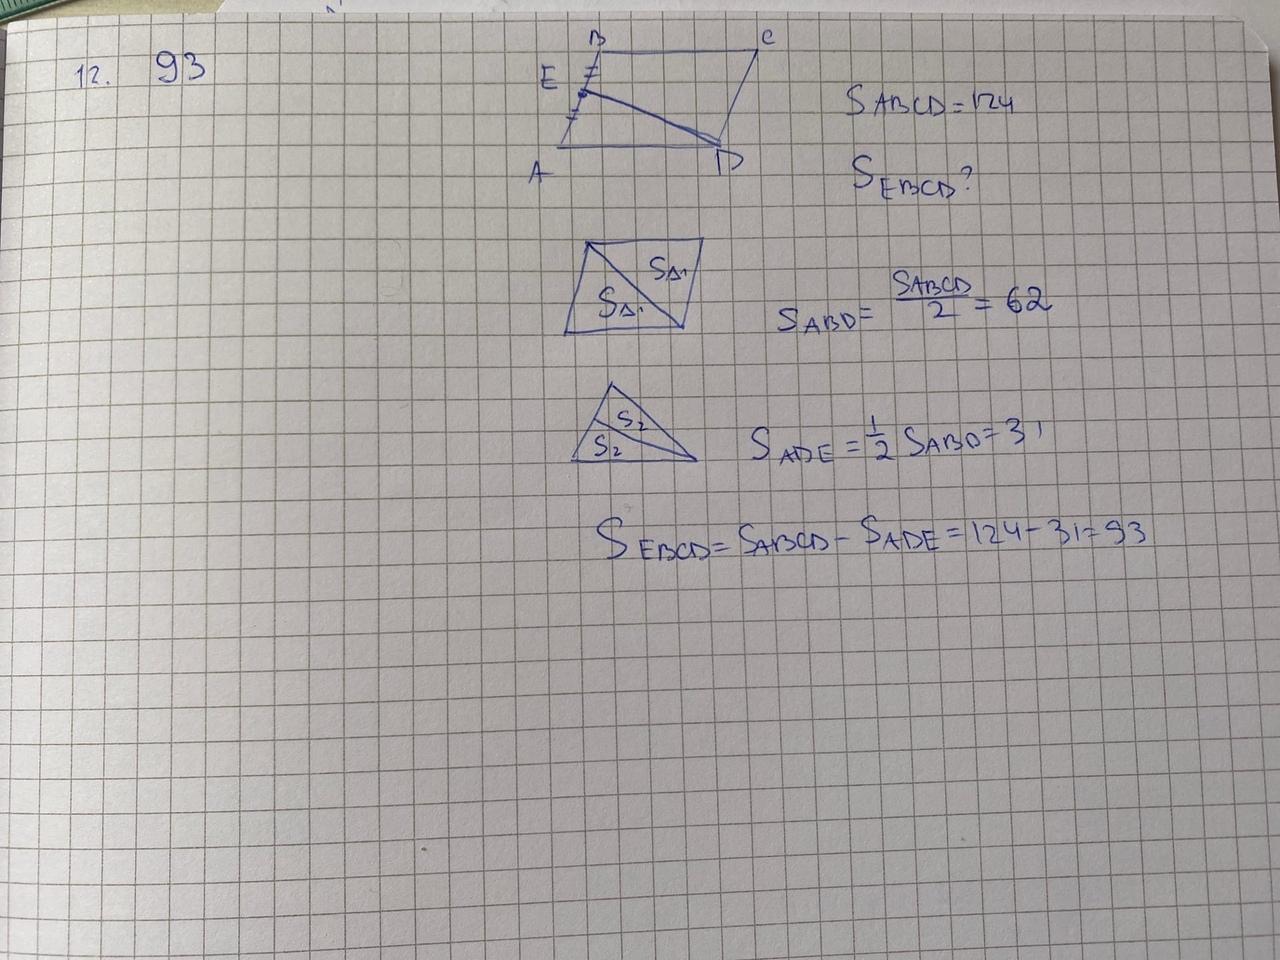 12. 93
B C
E
A D
S ABCD = 124
S EBCD?
S△1
S△1
S ABD = S ABCD / 2 = 62
S2
S2
S ADE = 1/2 S ABD = 31
S EBCD = S ABCD - S ADE = 124 - 31 = 93